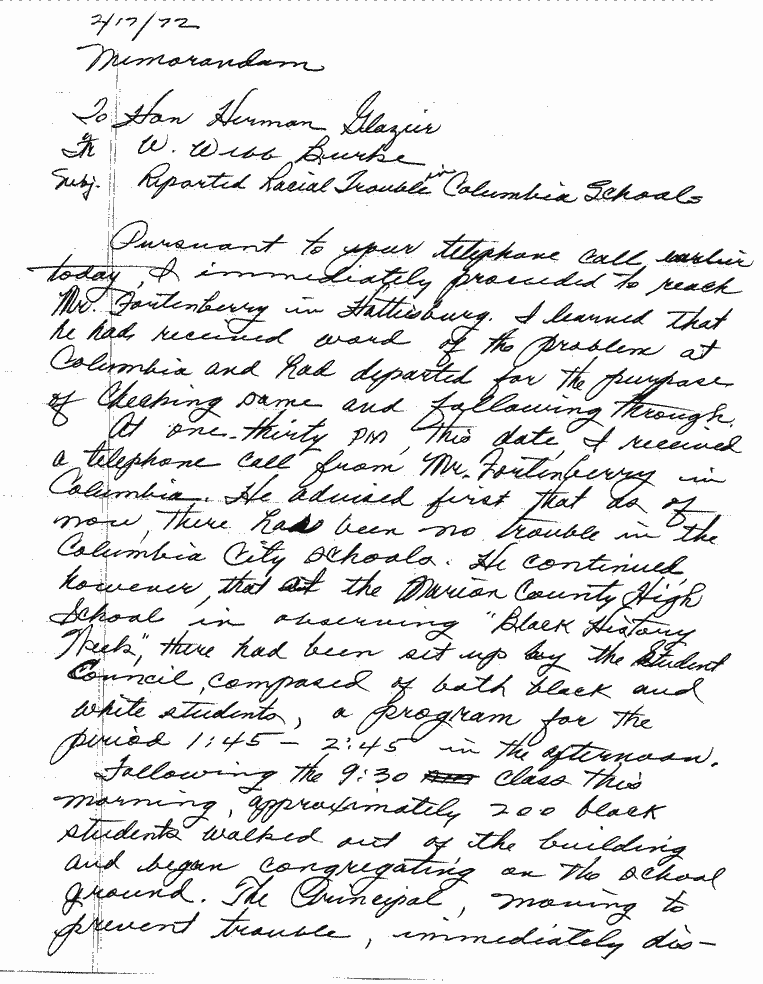 2/17/72
Memorandam
To Hon Herman Glazier
Fr W. Webb Burke
Subj. Reported Racial Trouble in Columbia Schools
Pursuant to your telephone call earlier
today, I immediately proceeded to reach
Mr. Fortenberry in Hattiesburg. I learned that
he had received word of the problem at
Columbia and had departed for the purpose
of checking same and following through.
At one-thirty PM, this date, I received
a telephone call from Mr. Fortenberry in
Columbia. He advised first that as of
now, there has been no trouble in the
Columbia City Schools. He continued,
however, that at the Marion County High
School in observing "Black History
Week", there had been set up by the Student
Council, composed of both black and
white students, a program for the
period 1:45 - 2:45 in the afternoon.
Following the 9:30 class this
morning, approximately 200 black
students walked out of the building
and began congregating on the school
ground. The Principal, moving to
prevent trouble, immediately dis-